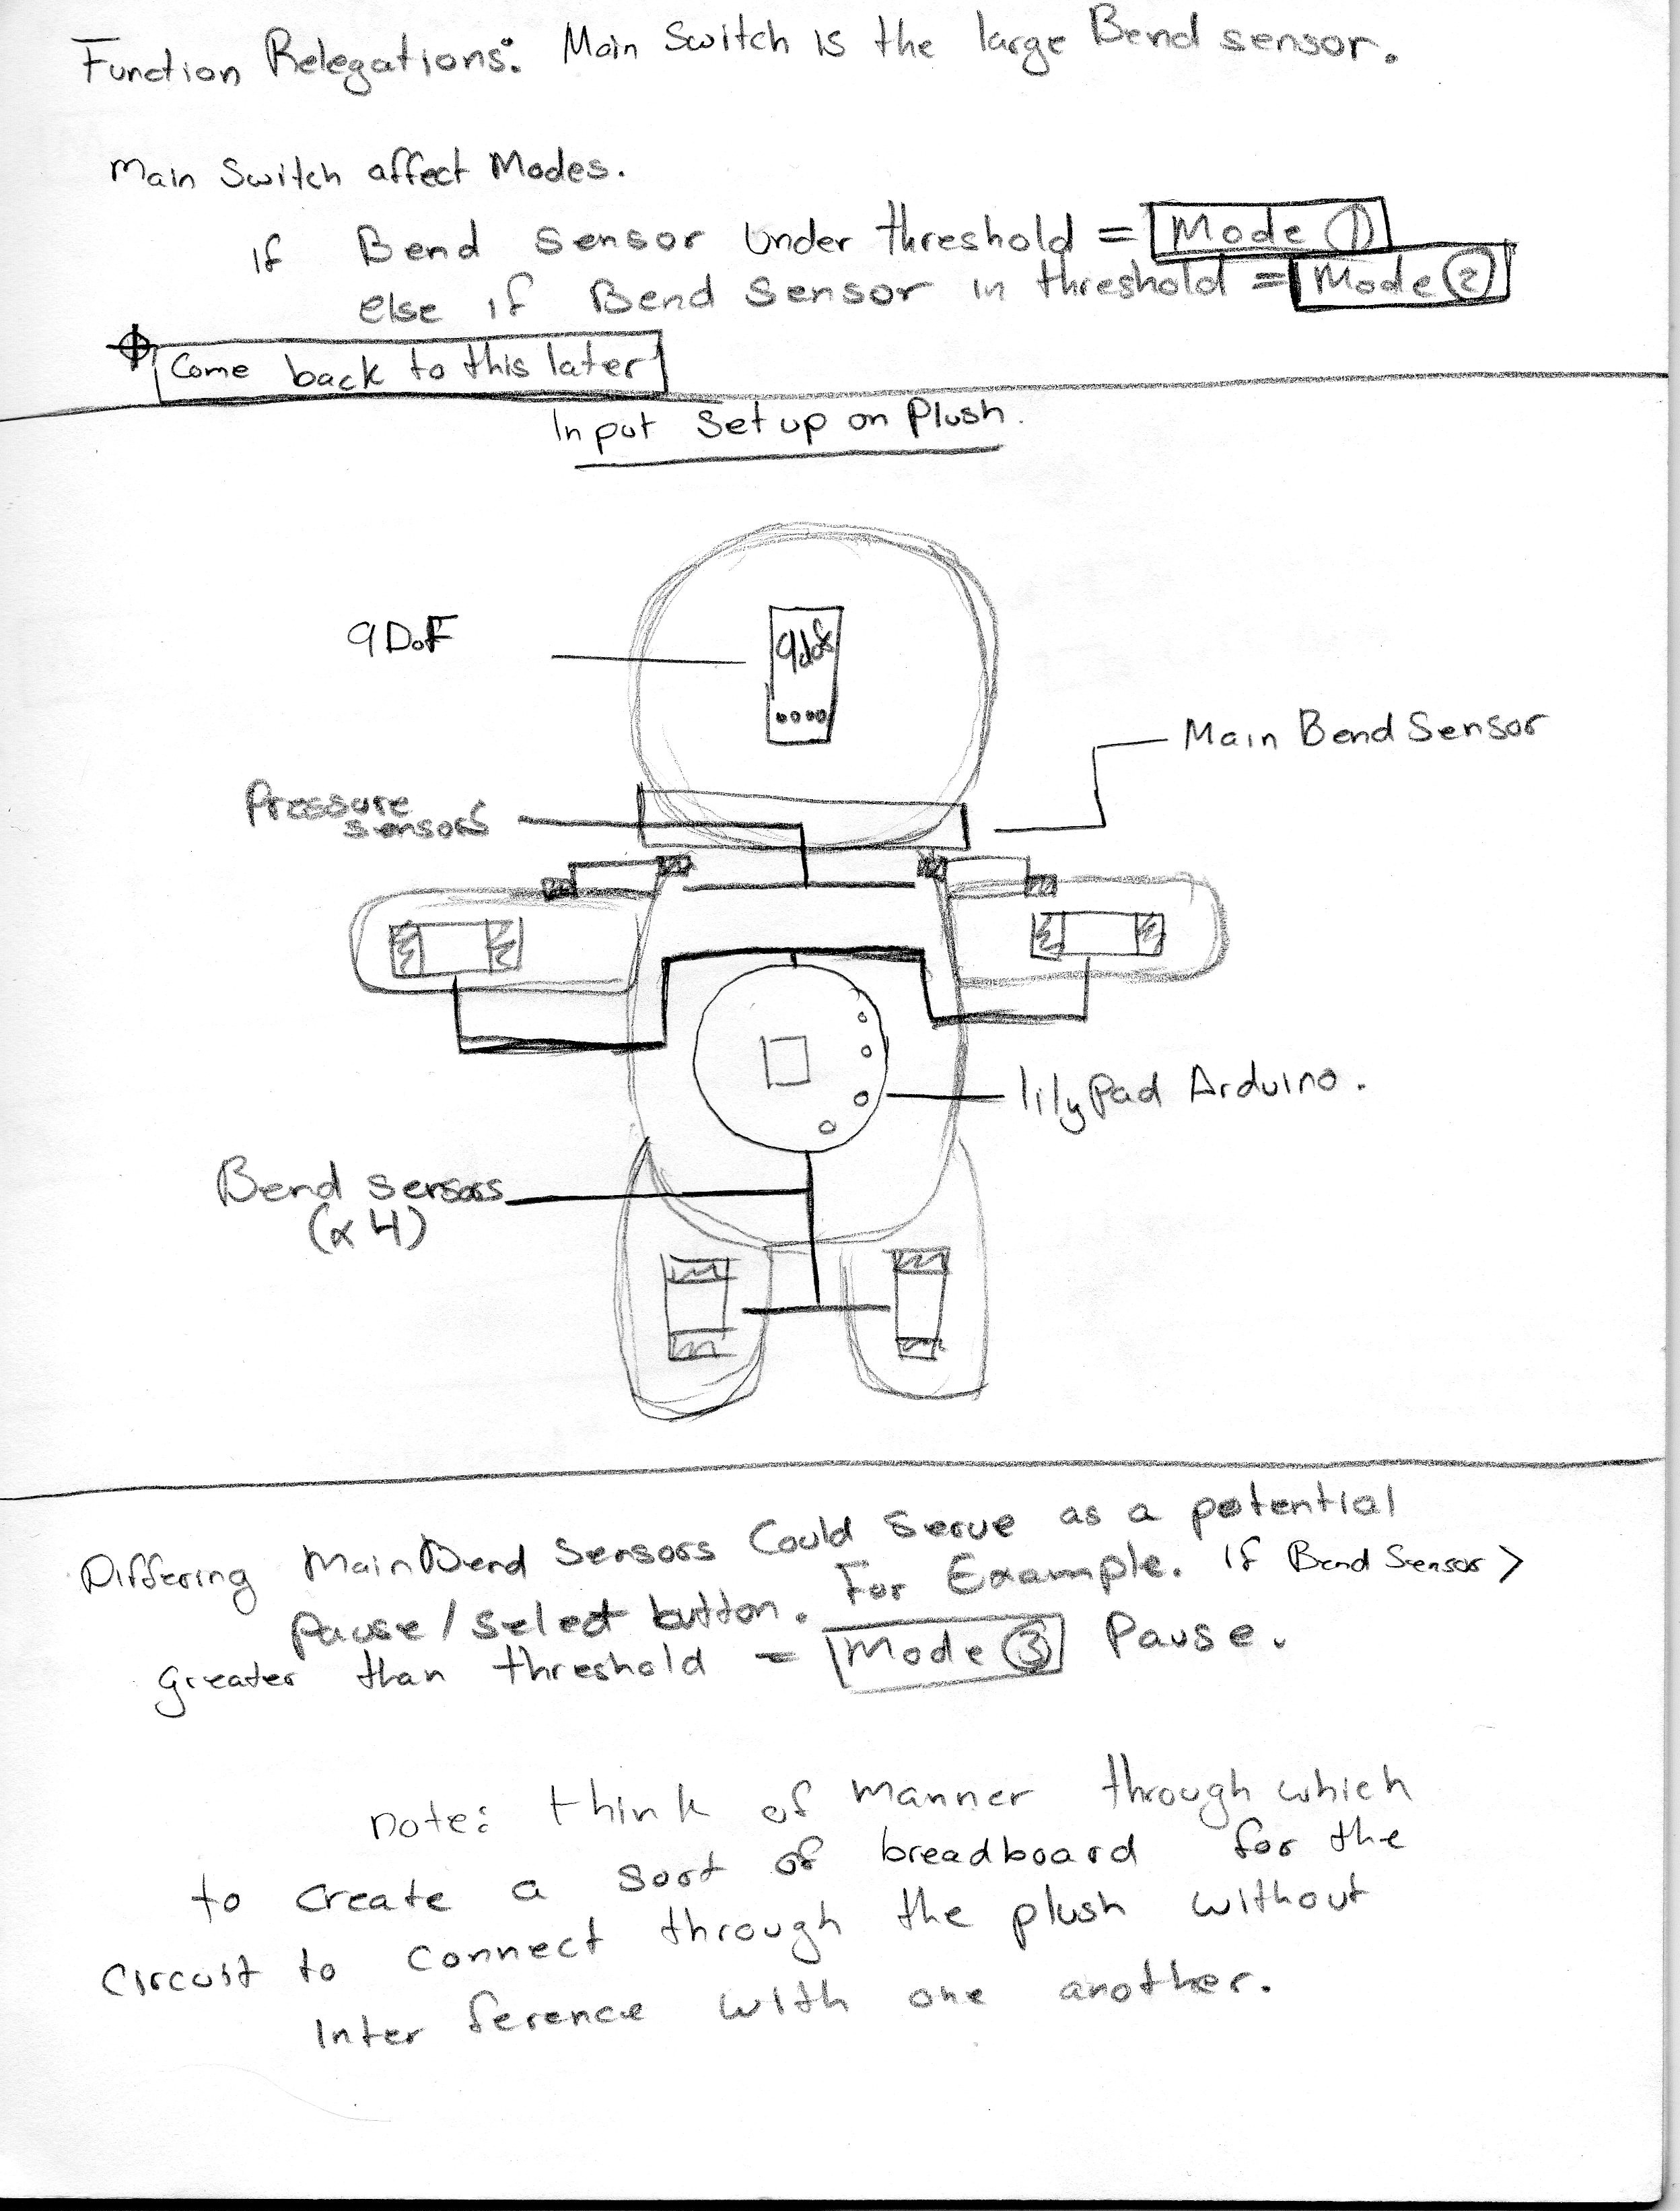 Function Relegations: Main Switch is the large Bend sensor.
Main Switch affect Modes.
if Bend sensor under threshold = Mode 1
else if Bend Sensor in threshold = Mode 2
Come back to this later
Input Setup on Plush.
9DoF
9dof
Main Bend Sensor
Pressure
sensors
lilyPad Arduino.
Bend sensors
(x4)
Differing Main Bend Sensors Could serve as a potential
pause/select button. For Example. if Bend Sensor >
greater than threshold = Mode 3 Pause.
note: think of manner through which
to create a sort of breadboard for the
circuit to connect through the plush without
Inter ference with one another.